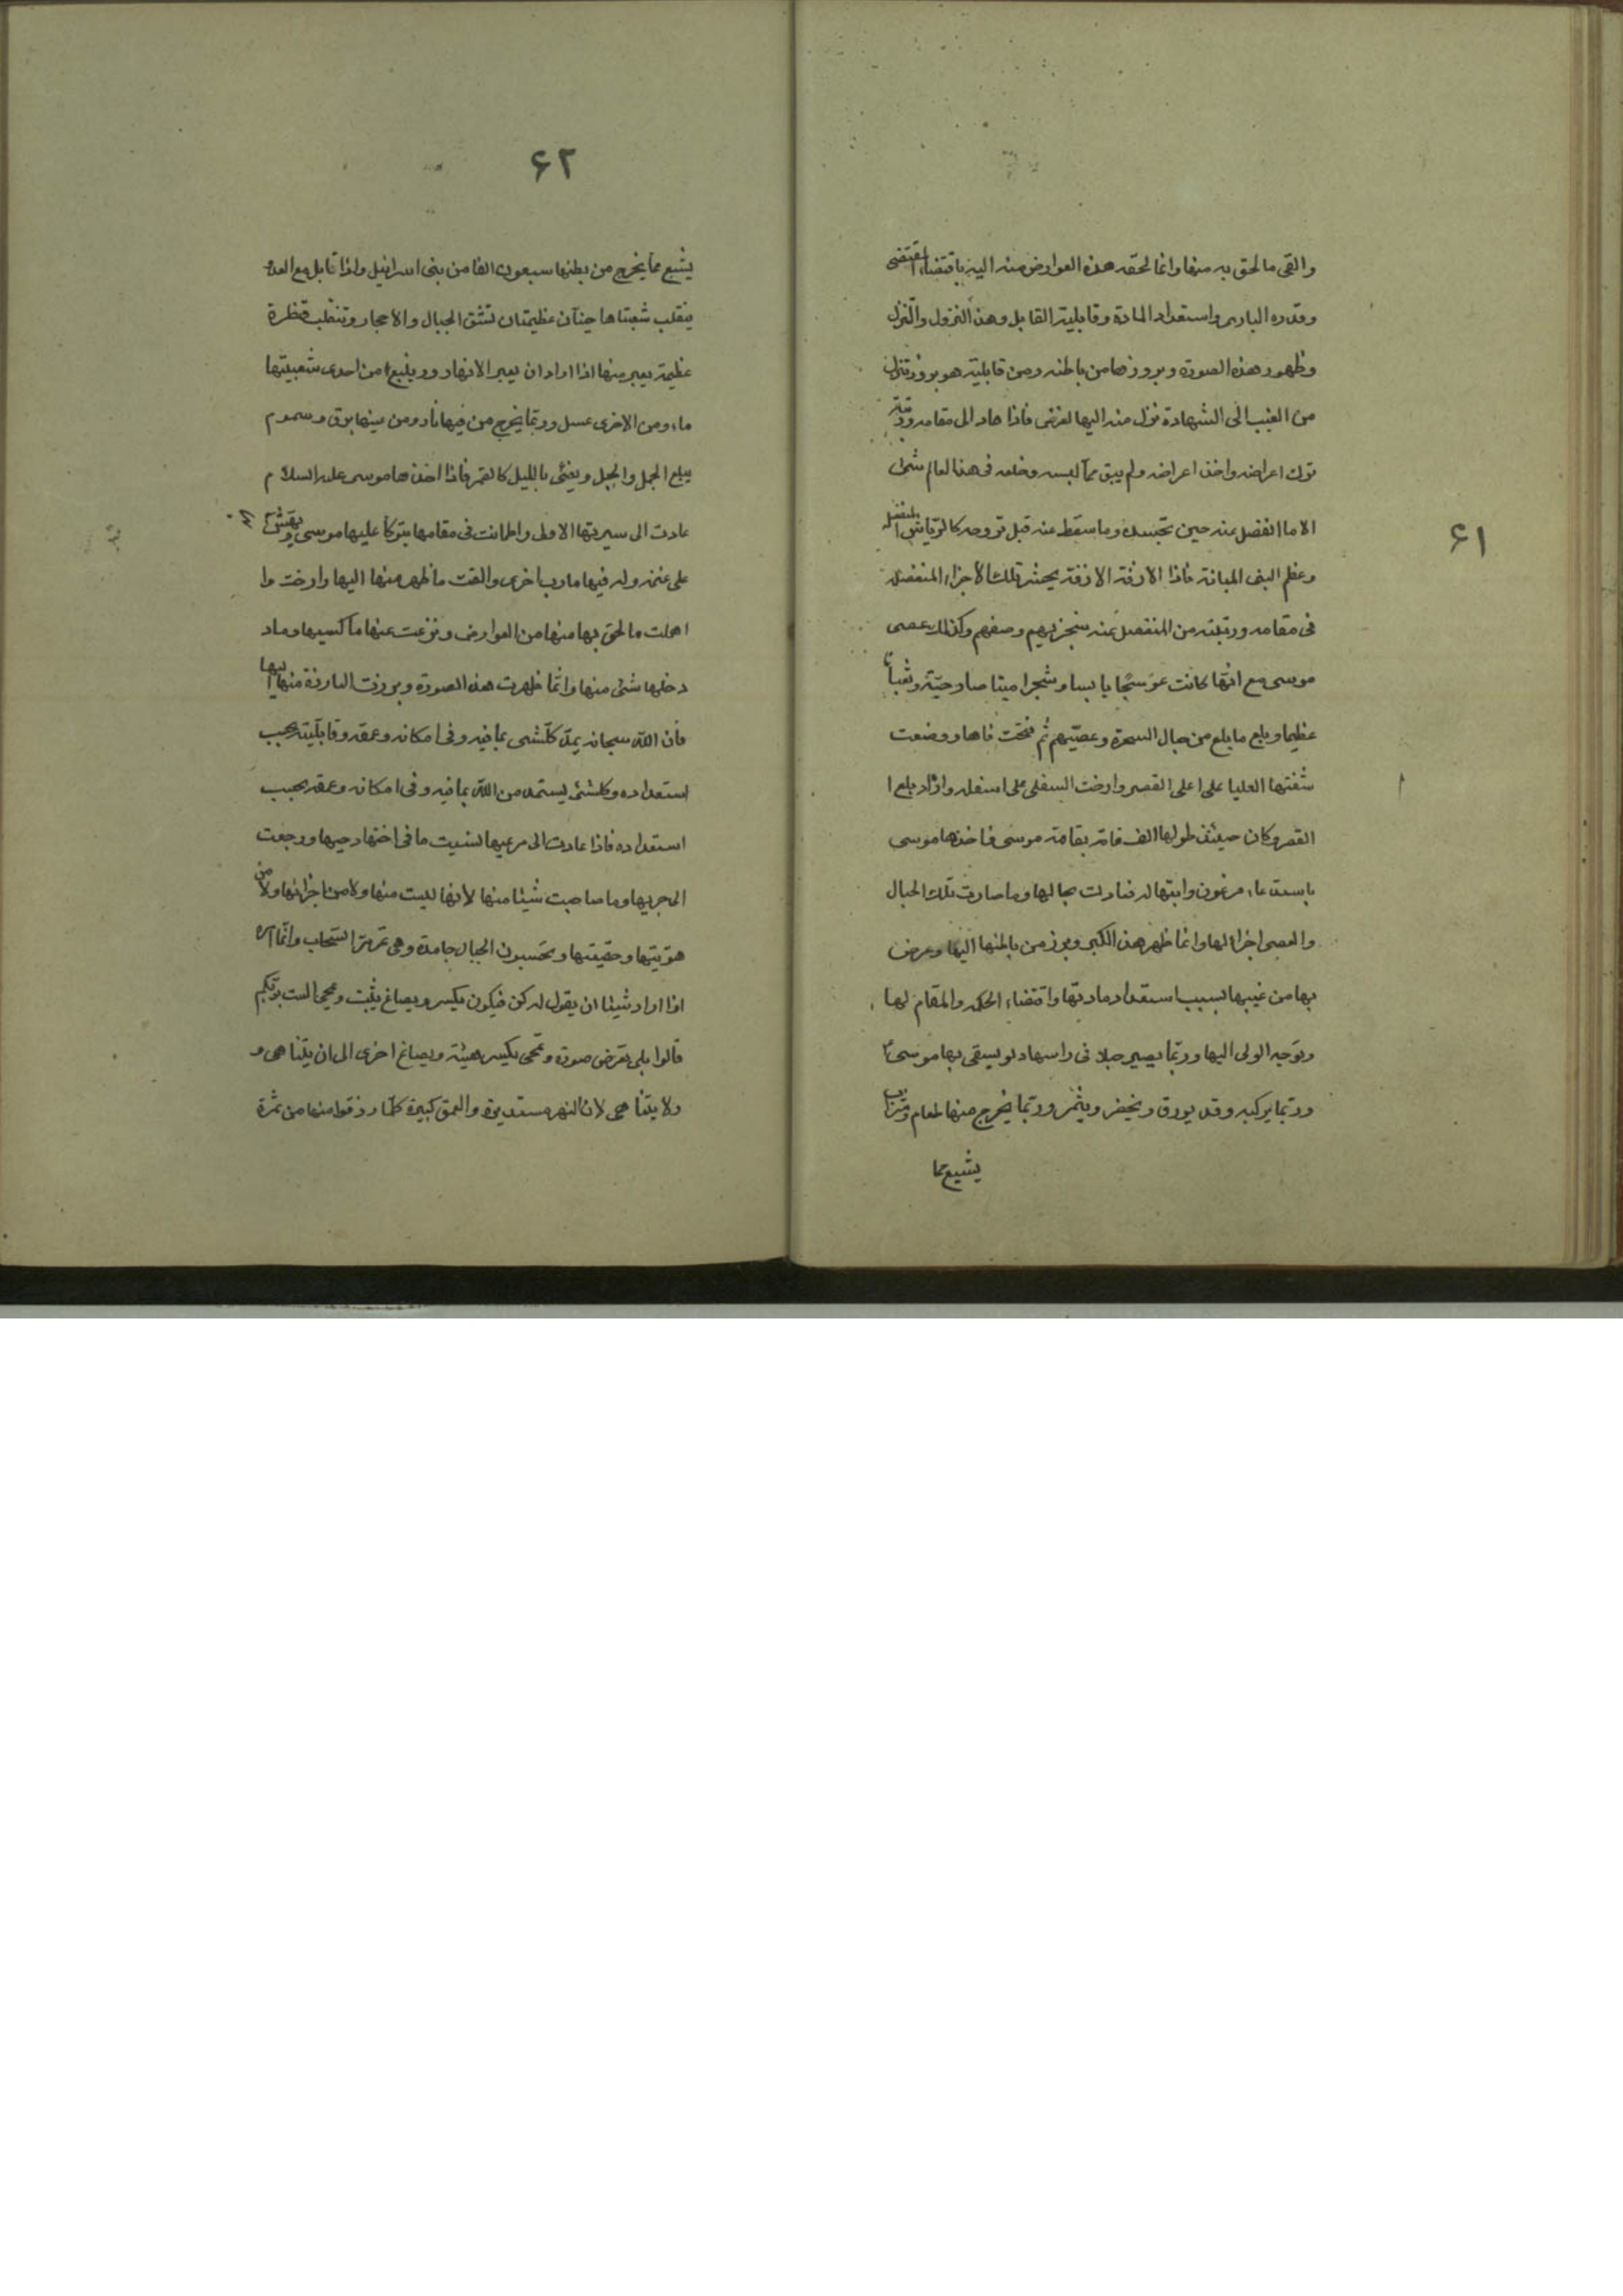 ۶۱
والقی ما لحق به منها وانما لحقه هذه العوارض منه الیه باقتضاء المقتضی
وقدره الباری واستعداد المادة وقابلیة القابل وهذا النزول والتنزل
وظهور هذه الصورة وبروزها من باطنه ومن قابلیته هو بروز وتنزل
من الغیب الی الشهادة نزل منه الیها لغرض فاذا عاد الی مقامه ورتبته
ترك اعراضه واخذ اعراضه ولم یبق مما لبسه وخلعه فی هذا العالم شیئ
الا ما انفصل عنه حین تجسده وما سقط عنه قبل تروحه كالریاش المنفصله
وعظم البنی المبانة فاذا الازفة الازفة یحشر تلك الاجزاء المنفصله
فی مقامه ورتبته من المنفصل عنه سیجزیهم وصفهم وكذلك عصی
موسی مع انها كانت عوسجا یابسا وشجرا میتا صار حیّة وثعبانا
عظیما وبلع ما بلع من حبال السحرة وعصیّهم ثم فتحت فاها ووضعت
شفتها العلیا علی اعلی القصر وارخت السفلی علی اسفله واراد بلع ا
القصر وكان حینئذ طولها الف قامة بقامة موسی فاخذها موسی
باستدعاء فرعون وابتهاله فعادت بحالها وما صارت تلك الحبال
والعصی اجزا لها وانما ظهر هذا الكبر وبرز من باطنها الیها وعرض
بها من غیبها بسبب استعداد مادتها واقتضاء الحكمه والمقام لها
وتوجه الولی الیها وربّما یصیر حبلا فی راسها دلو یسقی بها موسی ع
وربّما یركبه وقد یورق ویخضر ویثمر وربّما یخرج منها طعام وشراب
یشبع مما
۶۲
یشبع مما یخرج من بطنها سبعون الفا من بنی اسرائیل واذا تقابل مع العدو
ینقلب شعبتاها حیتان عظیمتان تشق الجبال والاحجار وتنقلب قنطرة
عظیمة یعبر منها اذا اراد ان یعبر الانهار وینبع من احدی شعبیتها
ماء ومن الاخری عسل وربّما یخرج من فیها نار ومن عینها برق وسموم
یبلع الجمل والجبل ویضئی باللیل كالقمر فاذا اخذها موسی علیه السلام
عادت الی سیرتها الاولی واطمانت فی مقامها یتوكأ علیها موسی ویهش بها
علی غنمه وله فیها مارب اخری والقت ما ظهر منها الیها وارخت وا
اهملت ما لحق بها منها من العوارض ونزعت عنها ما كسیها وما د
دخلها شئی منها وانّما ظهرت هذه الصورة وبرزت البارزة منها الیها
فان اللّه سبحانه یمدّ كلّشی بما فیه وفی امكانه وعمقه وقابلّیته بحسب
استعداده وكلشئی یستمد من اللّه بما فیه وفی امكانه وعمقه بحسب
استعداده فاذا عادت الی مرعیها نسیت ما فی اختها وحیها ورجعت
الی مجریها وما صاحبت شیئا منها لانها لیست منها ولا من اجزائها ولا من
هوّیتها وحقیقتها وتحسبون الجبال جامدة وهی تمرّ مرّ السّحاب وانّما امره
اذا اراد شیئا ان یقول له كن فیكون یكسر ویصاغ یثبت ویمحی الست بربّكم
قالوا بلی یعرض صورة ویمحی یكسر هیئة ویصاغ اخری الی ان یتناهی و
ولا یتناهی لان النهر مستدیرة والعمق كبیرة كلّما رزقوا منها من ثمرة